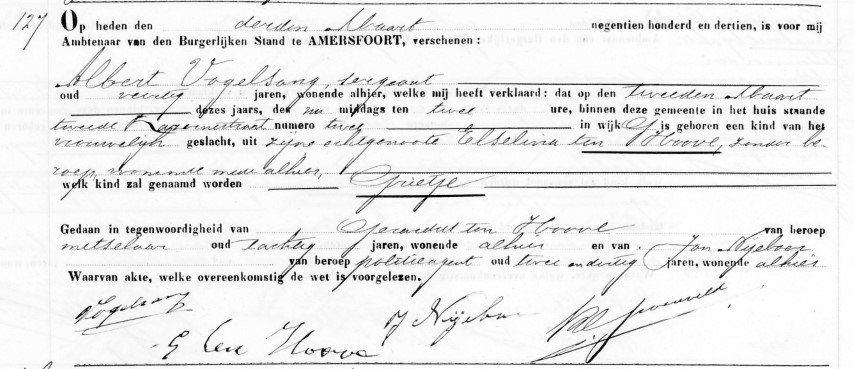 127 Op heden den derden Maart negentien honderd en dertien, is voor mij
Ambtenaar van den Burgerlijken Stand te AMERSFOORT, verschenen :
Albert Vogelsang, sergeant
oud veertig jaren, wonende alhier, welke mij heeft verklaard: dat op den tweeden Maart
dezes jaars, des na middags ten twee ure, binnen deze gemeente in het huis staande
tweede Kazernestraat numero twee in wijk is geboren een kind van het
vrouwelijk geslacht, uit zijne echtgenoote Elselina ten Hoove, zonder be-
roep, wonende mede alhier,
welk kind zal genaamd worden Grietje
Gedaan in tegenwoordigheid van ten Hoove van beroep
metselaar oud zachtig jaren, wonende alhier en van Jan Nijeboer
van beroep politieagent oud twee en dertig jaren, wonende alhier
Waarvan akte, welke overeenkomstig de wet is voorgelezen.
Vogelsang
G ten Hoove
J Nijeboer